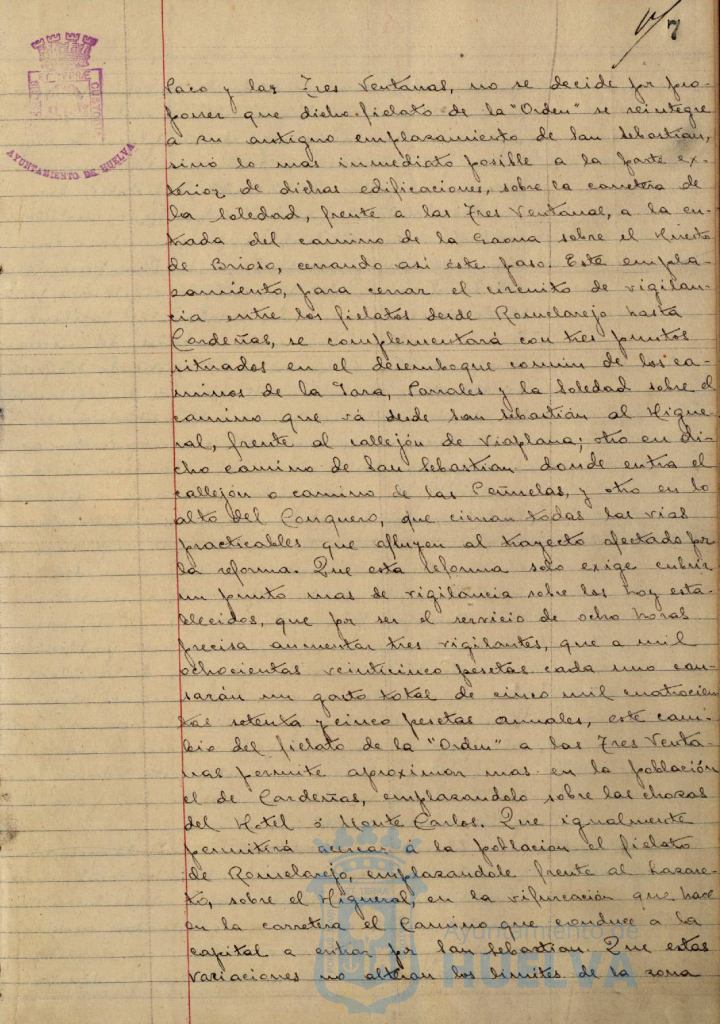 7
AYUNTAMIENTO DE HUELVA
Paco y las Tres Ventanas, no se decide por pro-
poner que dicho fielato de la "Orden" se reintegre
a su antiguo emplazamiento de San Sebastian,
sinó lo mas inmediato posible a la parte ex-
terior de dichas edificaciones, sobre la carretera de
la Soledad, frente a las Tres Ventanas, a la en-
trada del camino de la Gaona sobre el Huerto
de Brioso, cerrando asi este paso. Este empla-
zamiento, para cerrar el circuito de vigilan-
cia entre los fielatos desde Romelarejo hasta
Cardeñas, se complementará con tres puntos
situados en el desemboque comun de los ca-
minos de la Jara, Parrales y la Soledad sobre el
camino que vá desde San Sebastián al Higue-
ral, frente al callejón de Viaplana; otro en di-
cho camino de San Sebastian donde entra el
callejón o camino de las Peñuelas, y otro en lo
alto del Conquero, que cierran todas las vias
practicables que afluyen al trayecto afectado por
la reforma. Que esta reforma solo exige cubrir
un punto mas de vigilancia sobre los hoy esta-
blecidos, que por ser el servicio de ocho horas
precisa aumentar tres vigilantes, que a mil
ochocientas veinticinco pesetas cada uno cau-
sarán un gasto total de cinco mil cuatrocien
tas setenta y cinco pesetas anuales, este cam-
bio del fielato de la "Orden" a las Tres Venta-
nas permite aproximar mas en la población
el de Cardeñas, emplazandolo sobre las chozas
del Hotel ó Monte Carlos. Que igualmente
permitirá acercar á la poblacion el fielato
de Romelarejo, emplazandole frente al Lazare-
to, sobre el Higueral, en la vifurcación que hace
en la carretera el Camino que conduce a la
capital a entrar por San Sebastian. Que estas
variaciones no alteran los limites de la zona
Ayuntamiento de
HUELVA